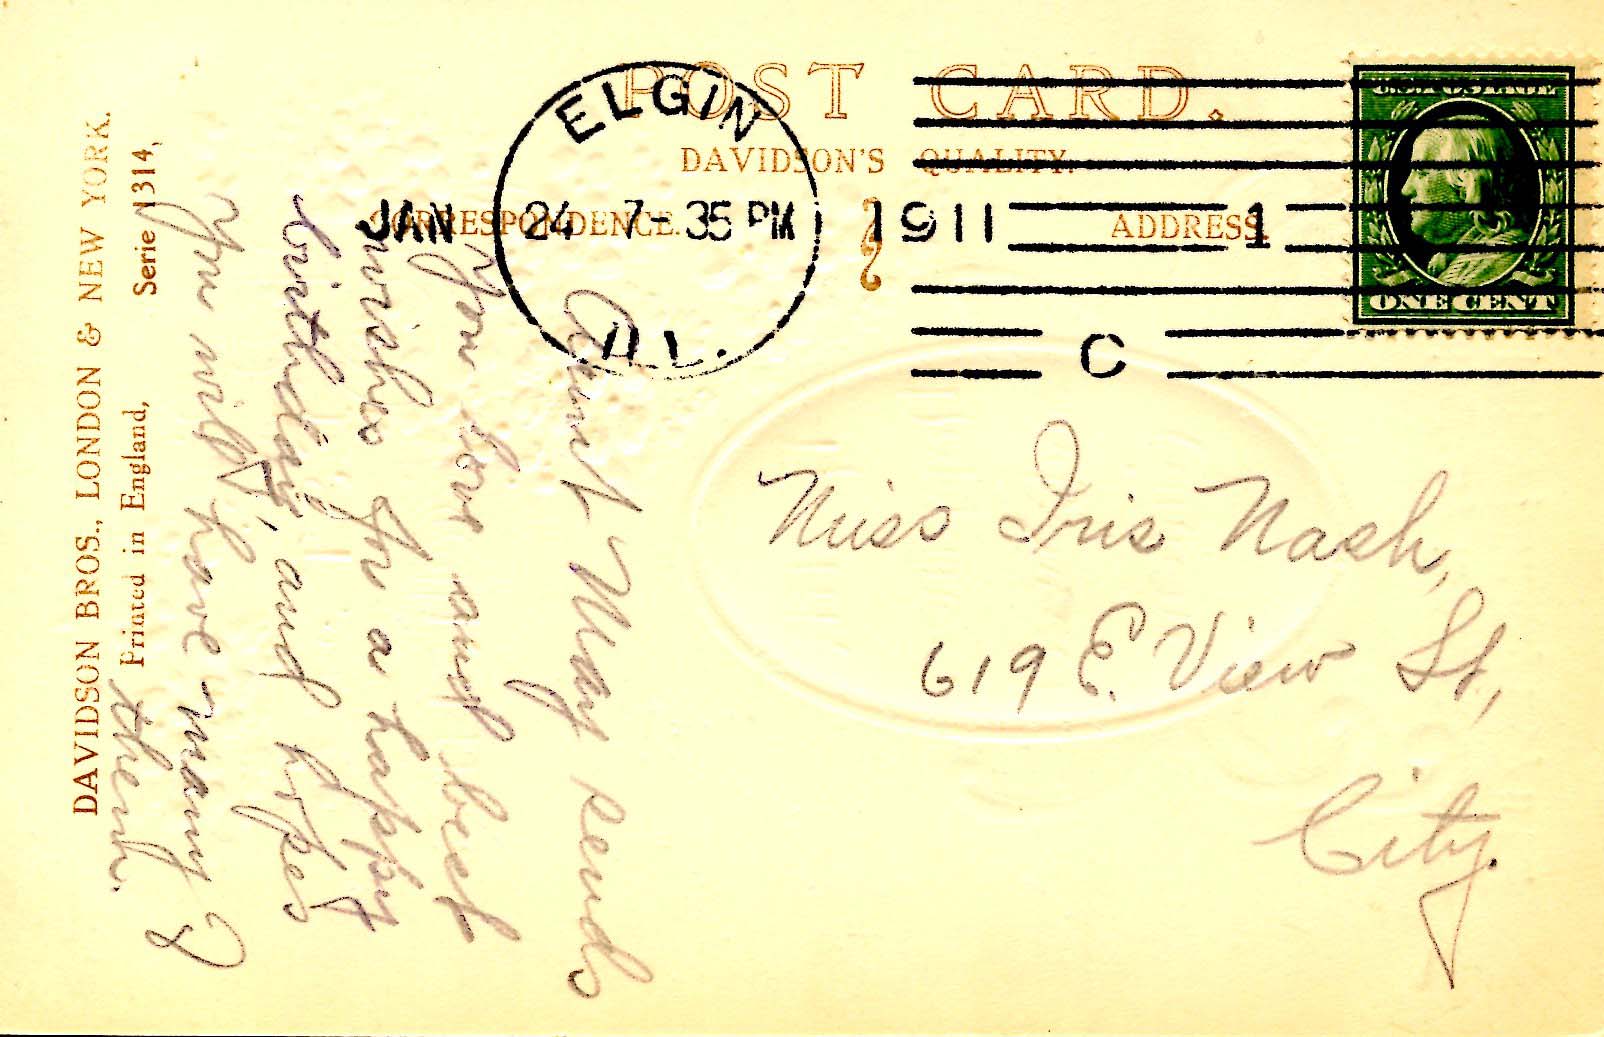 POST CARD.
DAVIDSON'S QUALITY.
CORRESPONDENCE.
ADDRESS.
ELGIN
JAN 24 7-35 PM 1911
ILL.
1
C
U.S. POSTAGE
ONE CENT
Aunt May sends
You love and best
wishes for a happy
birthday, and hopes
You will have many of
them.
Miss Iris Nash,
619 E. View St,
City.
DAVIDSON BROS., LONDON & NEW YORK.
Printed in England, Serie 1314,